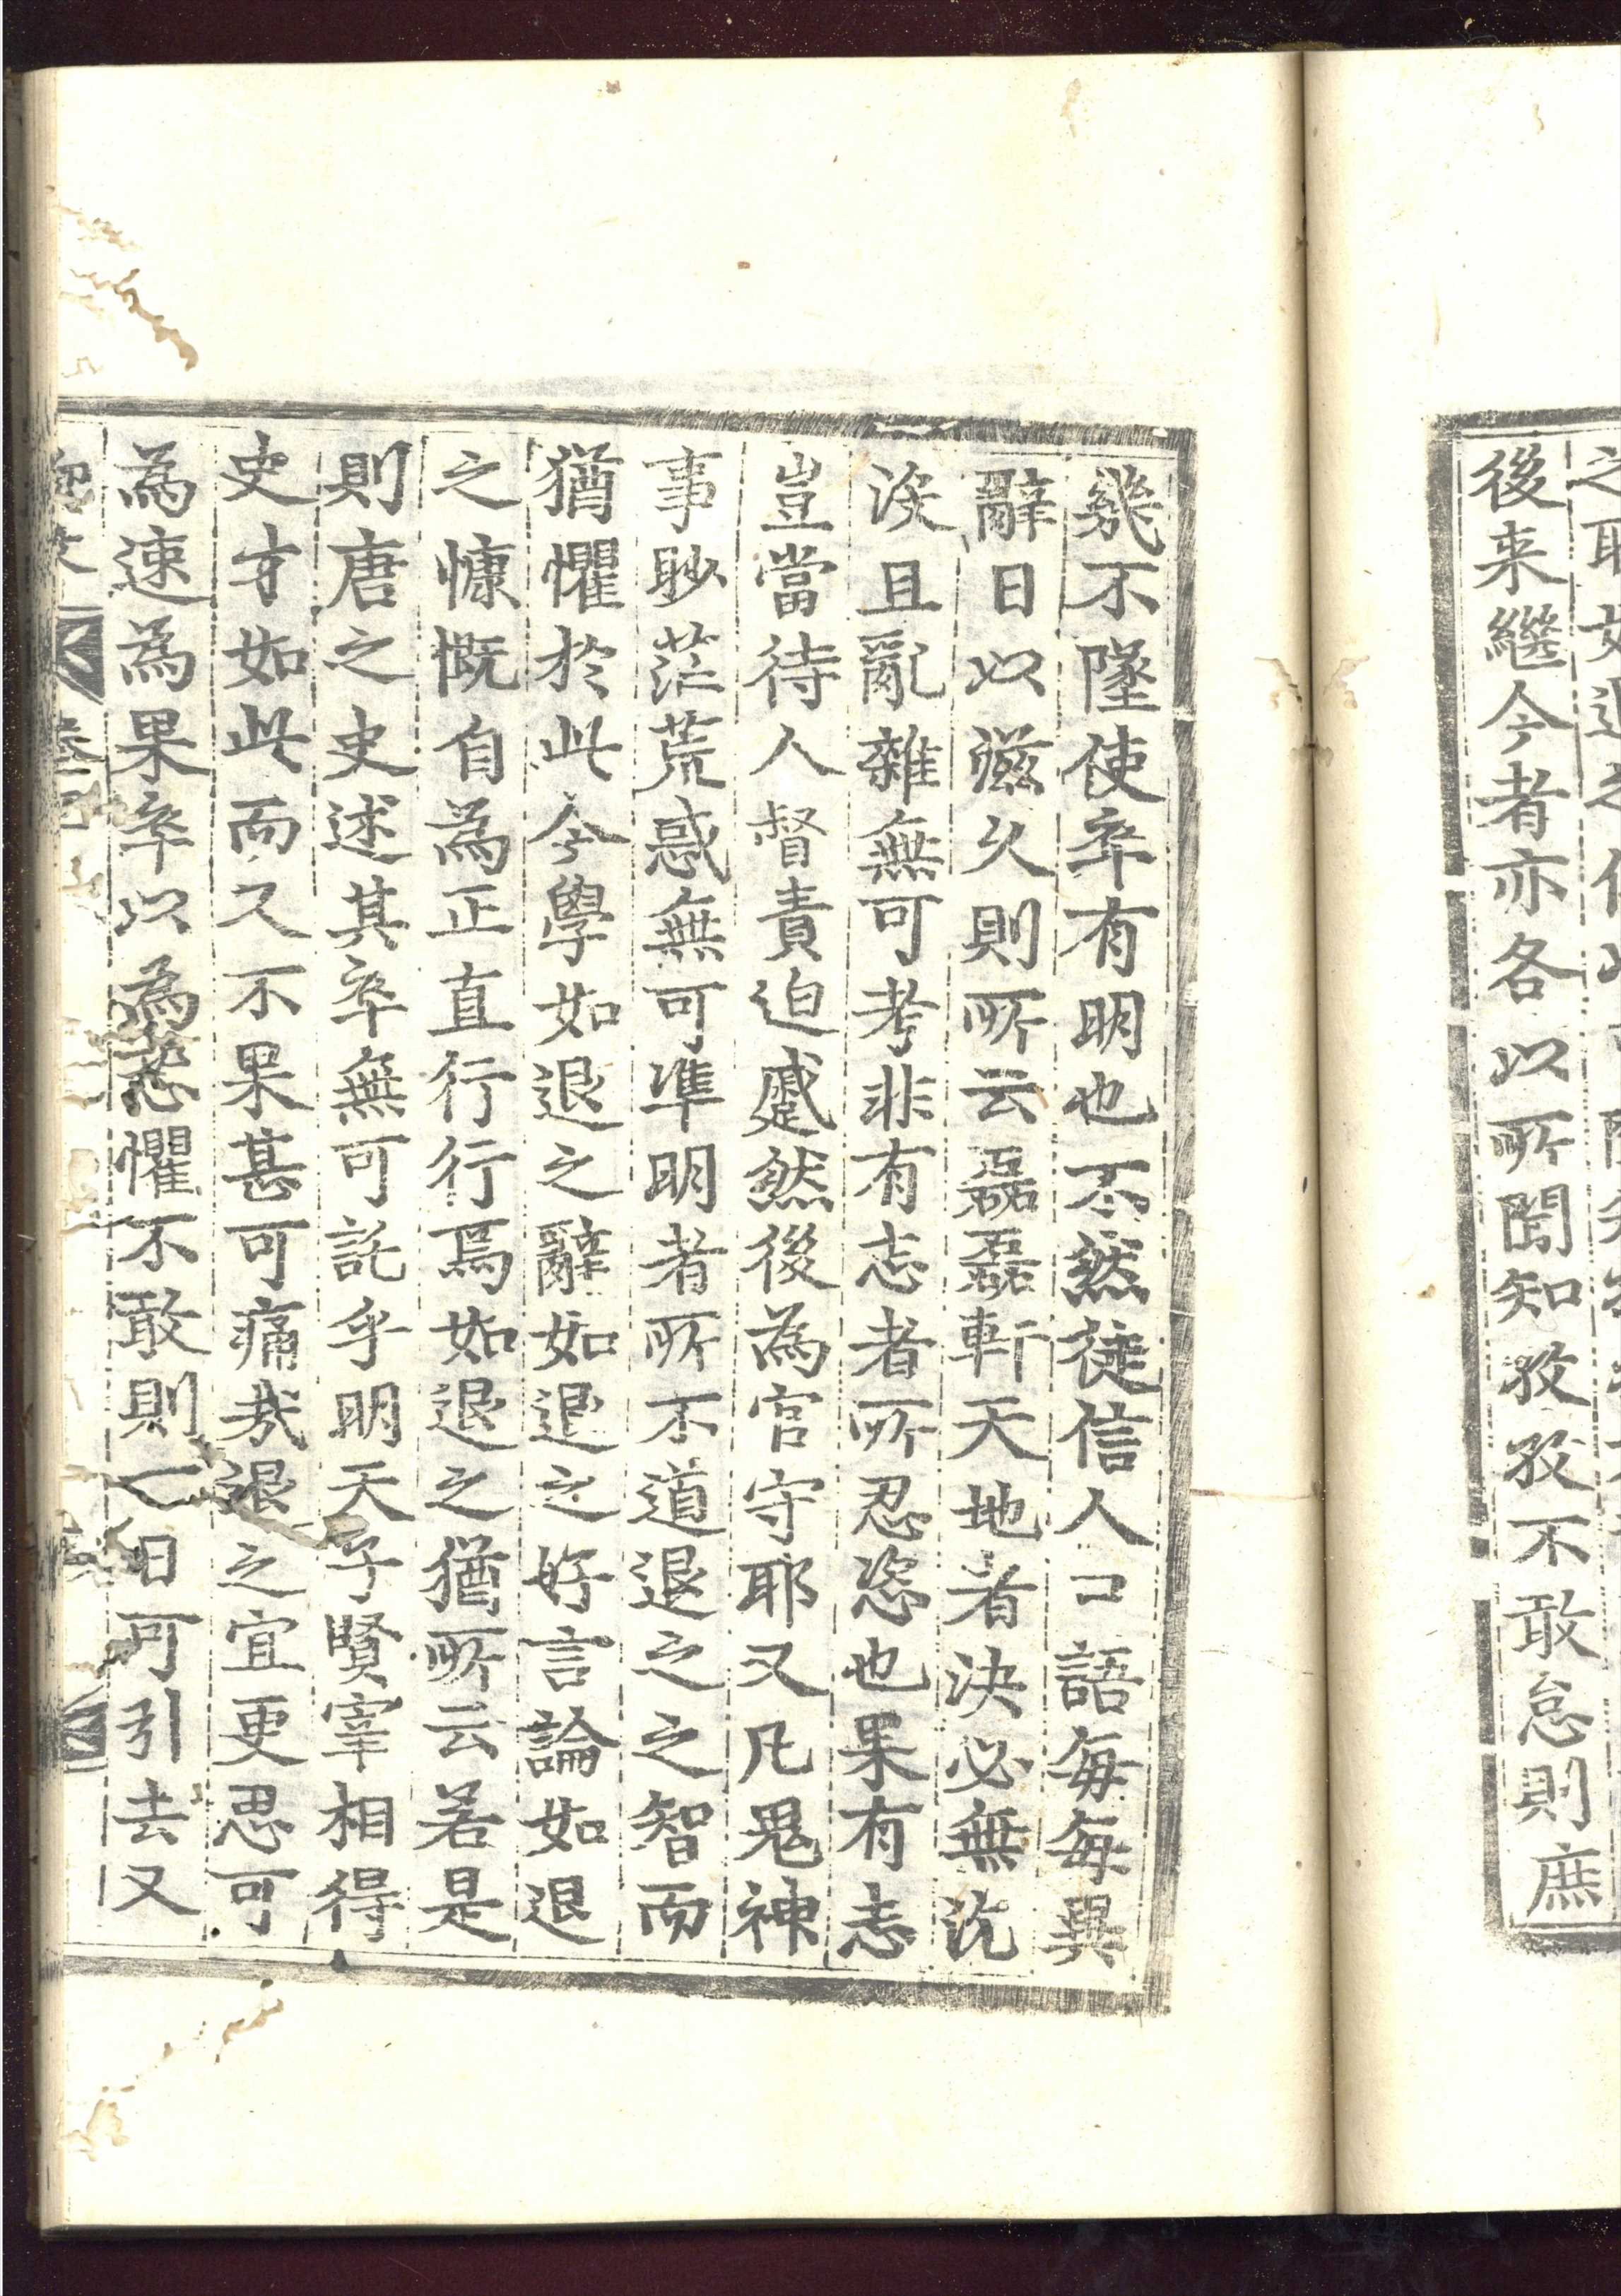 後来繼今者亦各以所聞知孜孜不敢怠則庶
幾不墜使卒有明也不然徒信人口語每每異
辭日以滋久則所云磊磊軒天地者決必無沈
沒且亂雜無可考非有志者所忍恣也果有志
豈當待人督責迫蹙然後為官守耶又凡鬼神
事眇茫荒惑無可準明者所不道退之之智而
猶懼於此今學如退之辭如退之好言論如退
之慷慨自為正直行行焉如退之猶所云若是
則唐之史述其卒無可託乎明天子賢宰相得
史才如此而又不果甚可痛哉退之宜更思可
為速為果卒以為恐懼不敢則一日可引去又